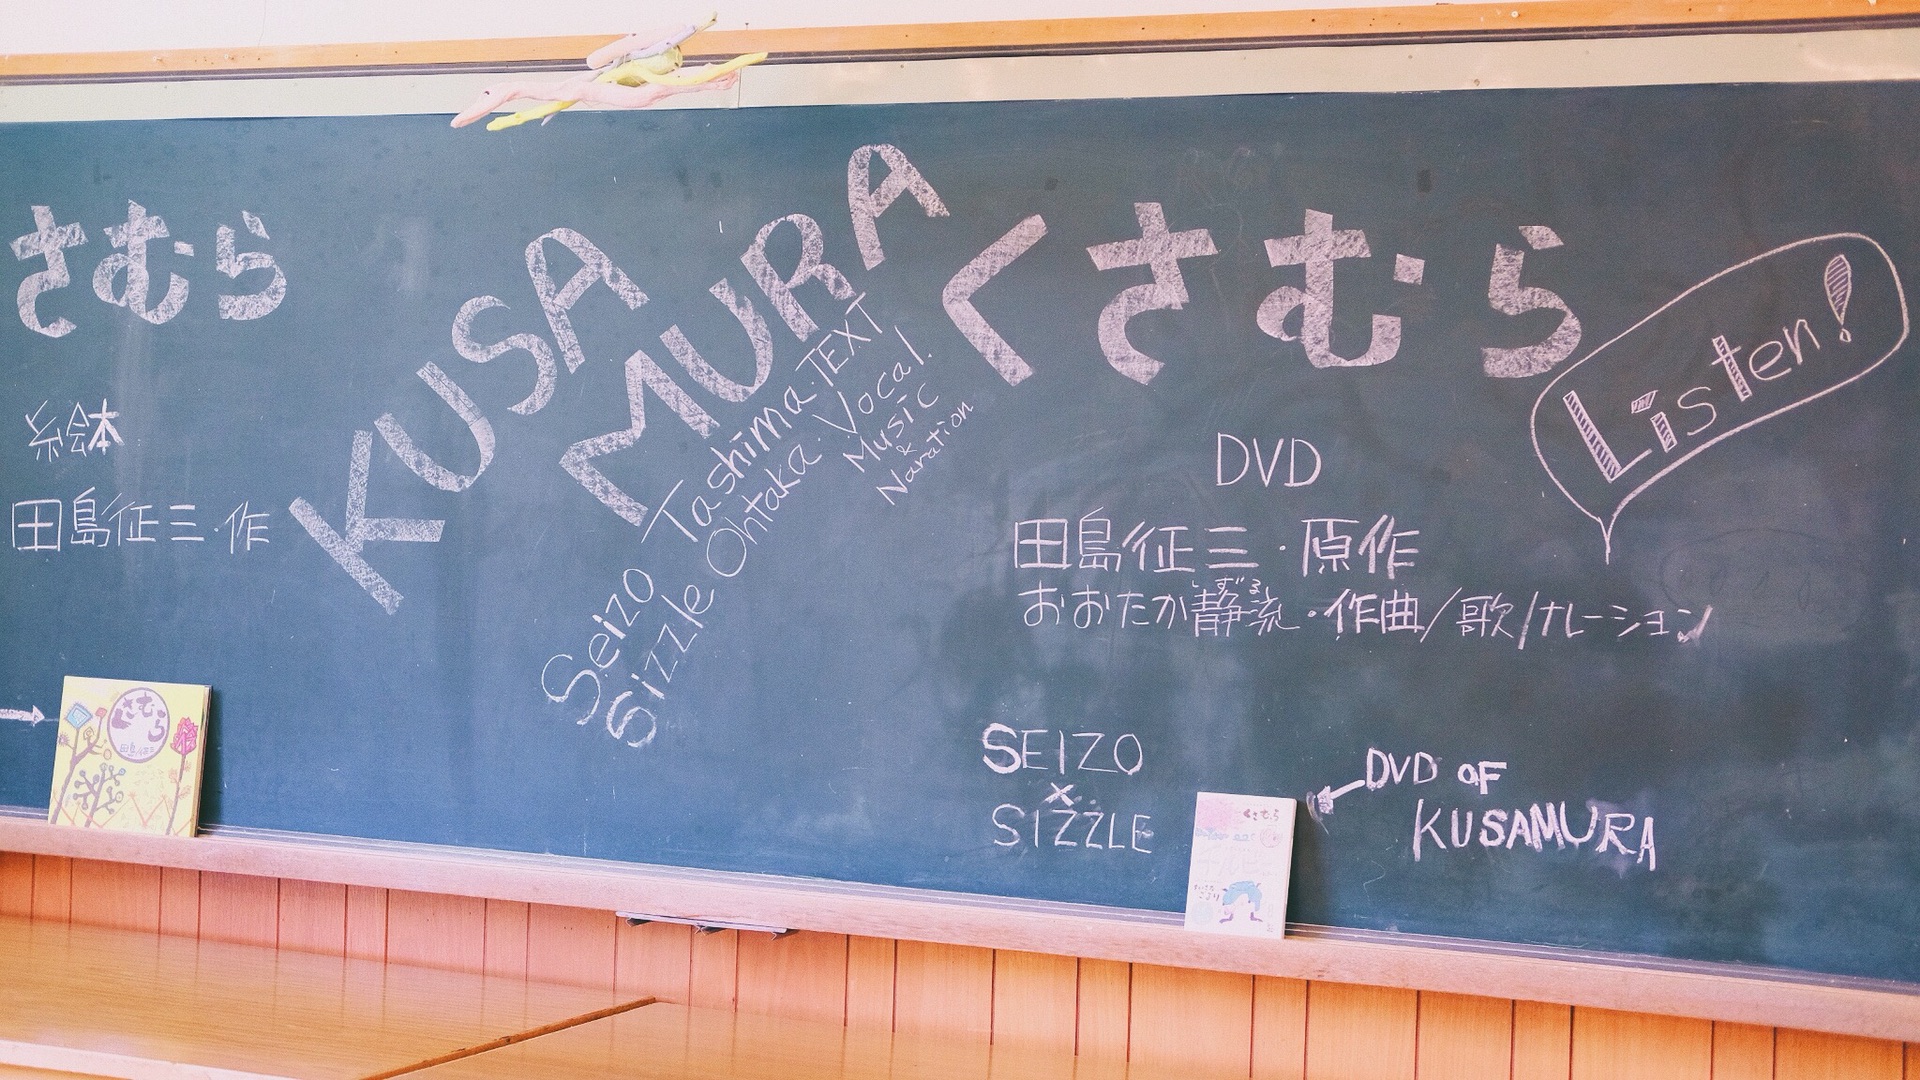 さむら
絵本
田島征三・作
KUSA
MURA
Seizo Tashima・TEXT
Sizzle Ohtaka・Vocal.
Music
&
Naration
くさむら
Listen!
DVD
田島征三・原作
しずる
おおたか静流・作曲/歌/ナレーション
SEIZO
×
SIZZLE
DVD OF
KUSAMURA
くさむら
田島征三
くさむら